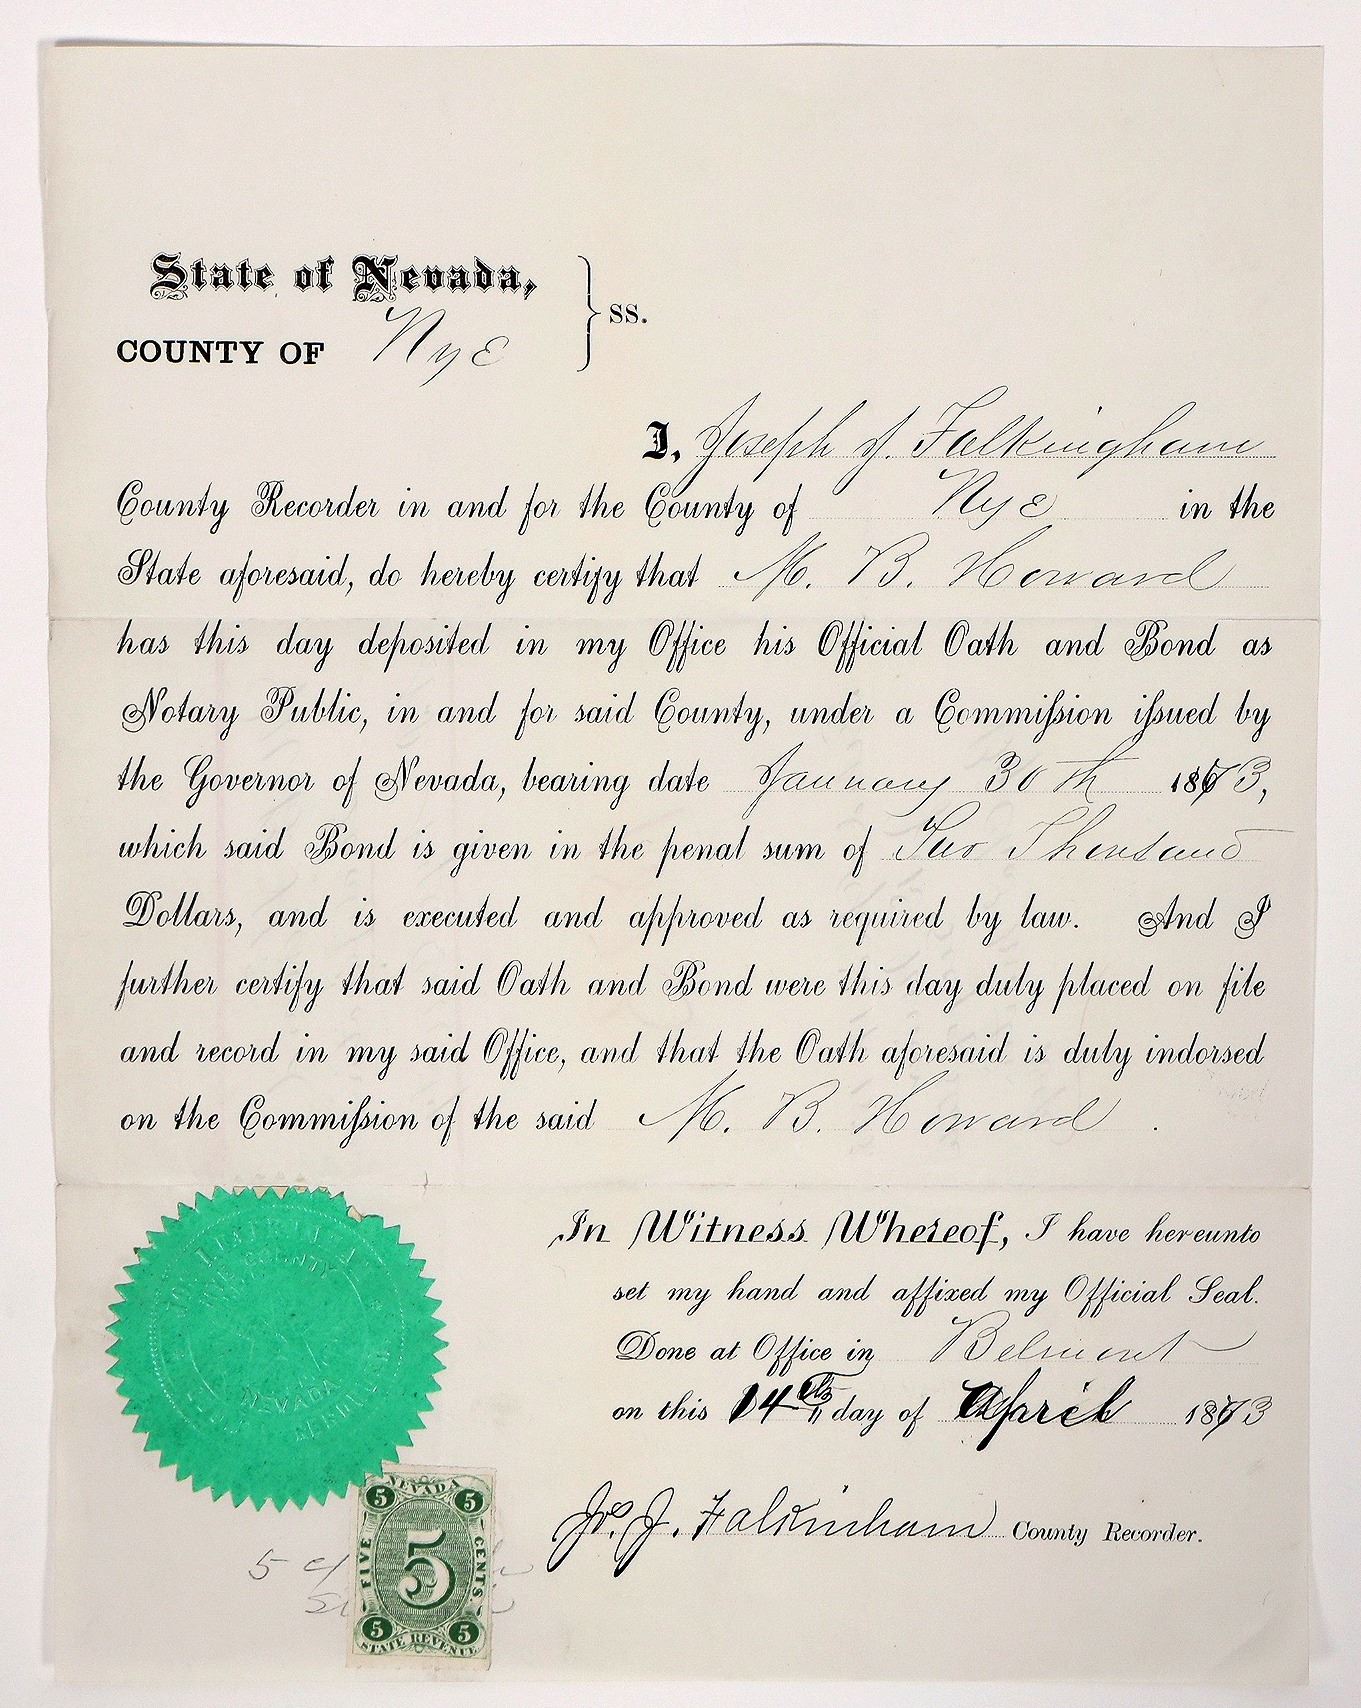 State of Nevada,
COUNTY OF Nye } ss.
I, Joseph J. Falkingham
County Recorder in and for the County of Nye in the
State aforesaid, do hereby certify that M. B. Howard
has this day deposited in my Office his Official Oath and Bond as
Notary Public, in and for said County, under a Commiſsion iſsued by
the Governor of Nevada, bearing date January 30th 1873,
which said Bond is given in the penal sum of Two Thousand
Dollars, and is executed and approved as required by law. And I
further certify that said Oath and Bond were this day duly placed on file
and record in my said Office, and that the Oath aforesaid is duly indorsed
on the Commiſsion of the said M. B. Howard.
In Witness Whereof, I have hereunto
set my hand and affixed my Official Seal.
Done at Office in Belmont
on this 14th day of April 1873
Jos. J. Falkinham County Recorder.
NYE COUNTY
NEVADA
NEVADA
5 5
FIVE 5 CENTS
5 5
STATE REVENUE
5